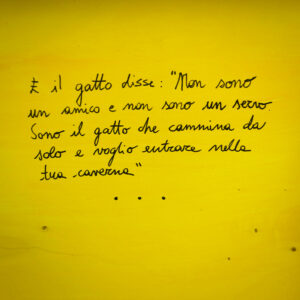 E il gatto disse: "Non sono
un amico e non sono un servo.
Sono il gatto che cammina da
solo e voglio entrare nella
tua caverna"
...